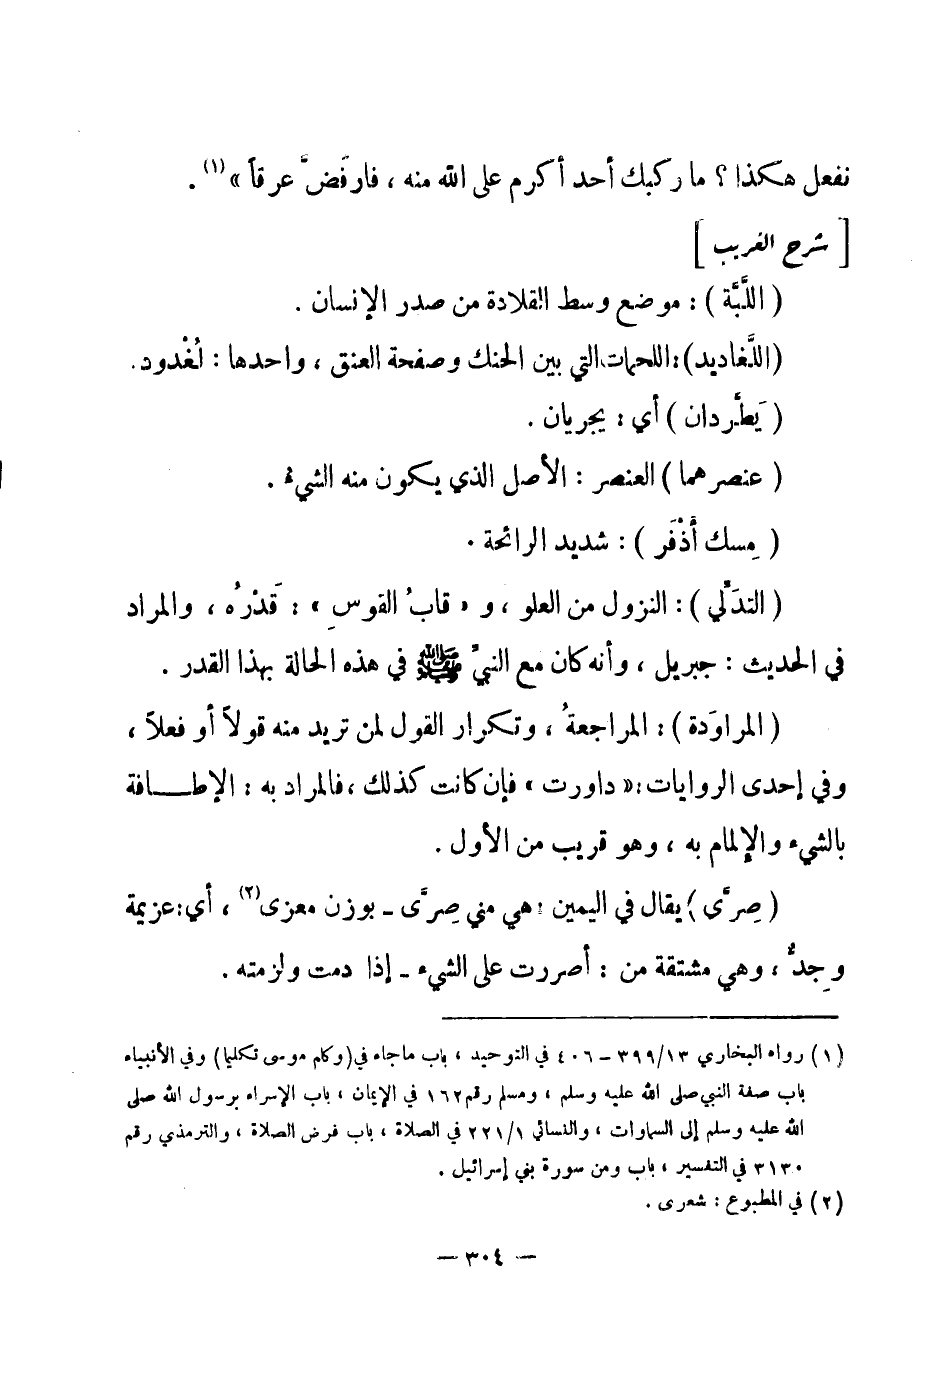 نفعل هكذا ؟ ما ركبك أحد أكرم على الله منه ، فارفَضَّ عرقاً » (١) .
[ شرح الغريب ]
( اللَّبَّة ) : موضع وسط القلادة من صدر الإنسان .
(اللَّغاديد) : اللحمات التي بين الحنك وصفحة العنق ، واحدها : لُغْدود .
( يَطَّردان ) أي : يجريان .
( عنصرهما ) العنصر : الأصل الذي يكون منه الشيء .
( مِسك أَذْفَر ) : شديد الرائحة .
( التدَلِّي ) : النزول من العلو ، و « قابُ القوسِ » : قَدْرُه ، والمراد
في الحديث : جبريل ، وأنه كان مع النبيِّ ﷺ في هذه الحالة بهذا القدر .
( المراوَدة ) : المراجعةُ ، وتكرار القول لمن تريد منه قولاً أو فعلاً ،
وفي إحدى الروايات : « داورت » فإن كانت كذلك ، فالمراد به : الإطـــافة
بالشيء والإلمام به ، وهو قريب من الأول .
( صِرَّى ) يقال في اليمين : هي مني صِرَّى ـ بوزن معزى (٢) ، أي : عزيمة
وجِدٌّ ، وهي مشتقة من : أصررت على الشيء ـ إذا دمت ولزمته .
(١) رواه البخاري ٣٩٩/١٣ – ٤٠٦ في التوحيد ، باب ماجاء في (وكلم موسى تكليما) وفي الأنبياء
باب صفة النبي صلى الله عليه وسلم ، ومسلم رقم ١٦٢ في الإيمان ، باب الإسراء برسول الله صلى
الله عليه وسلم إلى السماوات ، والنسائي ٢٢١/١ في الصلاة ، باب فرض الصلاة ، والترمذي رقم
٣١٣٠ في التفسير ، باب ومن سورة بني إسرائيل .
(٢) في المطبوع : شعرى .
— ٣٠٤ —